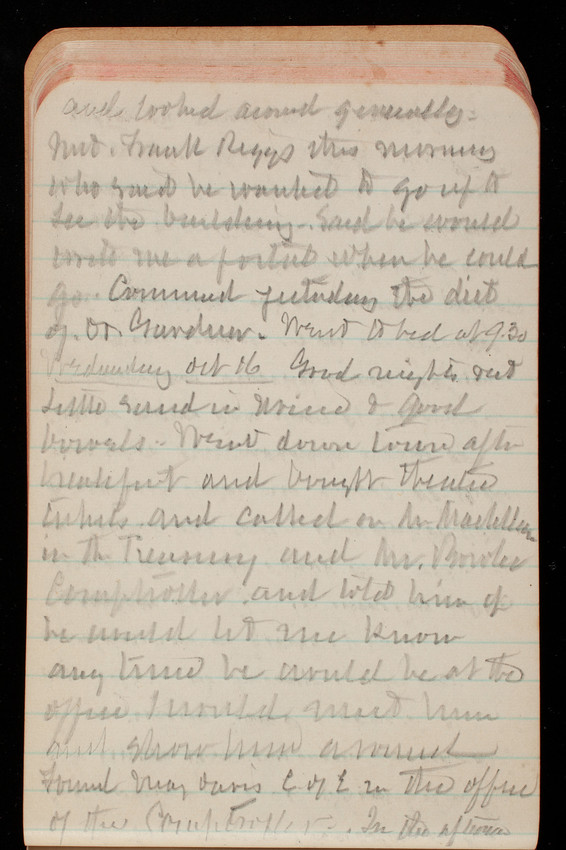 and looked around generally.
Met Frank Riggs this morning
who said he wanted to go up to
see the building. Said he would
write me a postal when he could
go. Commenced yesterday the diet
of Dr. Gardner. Went to bed at 9.30
Wednesday Oct 16 Good nights rest
little sand in urine & good
bowels. Went down town after
breakfast and bought theatre
tickets and called on Mr.
in the Treasury and Mr. Bowler
Comptroller and told him if
he would let me know
any time he would be at the
office I would meet him
and show him around
Found Maj Davis C of E in the office
of the Comptroller. In the afternoon